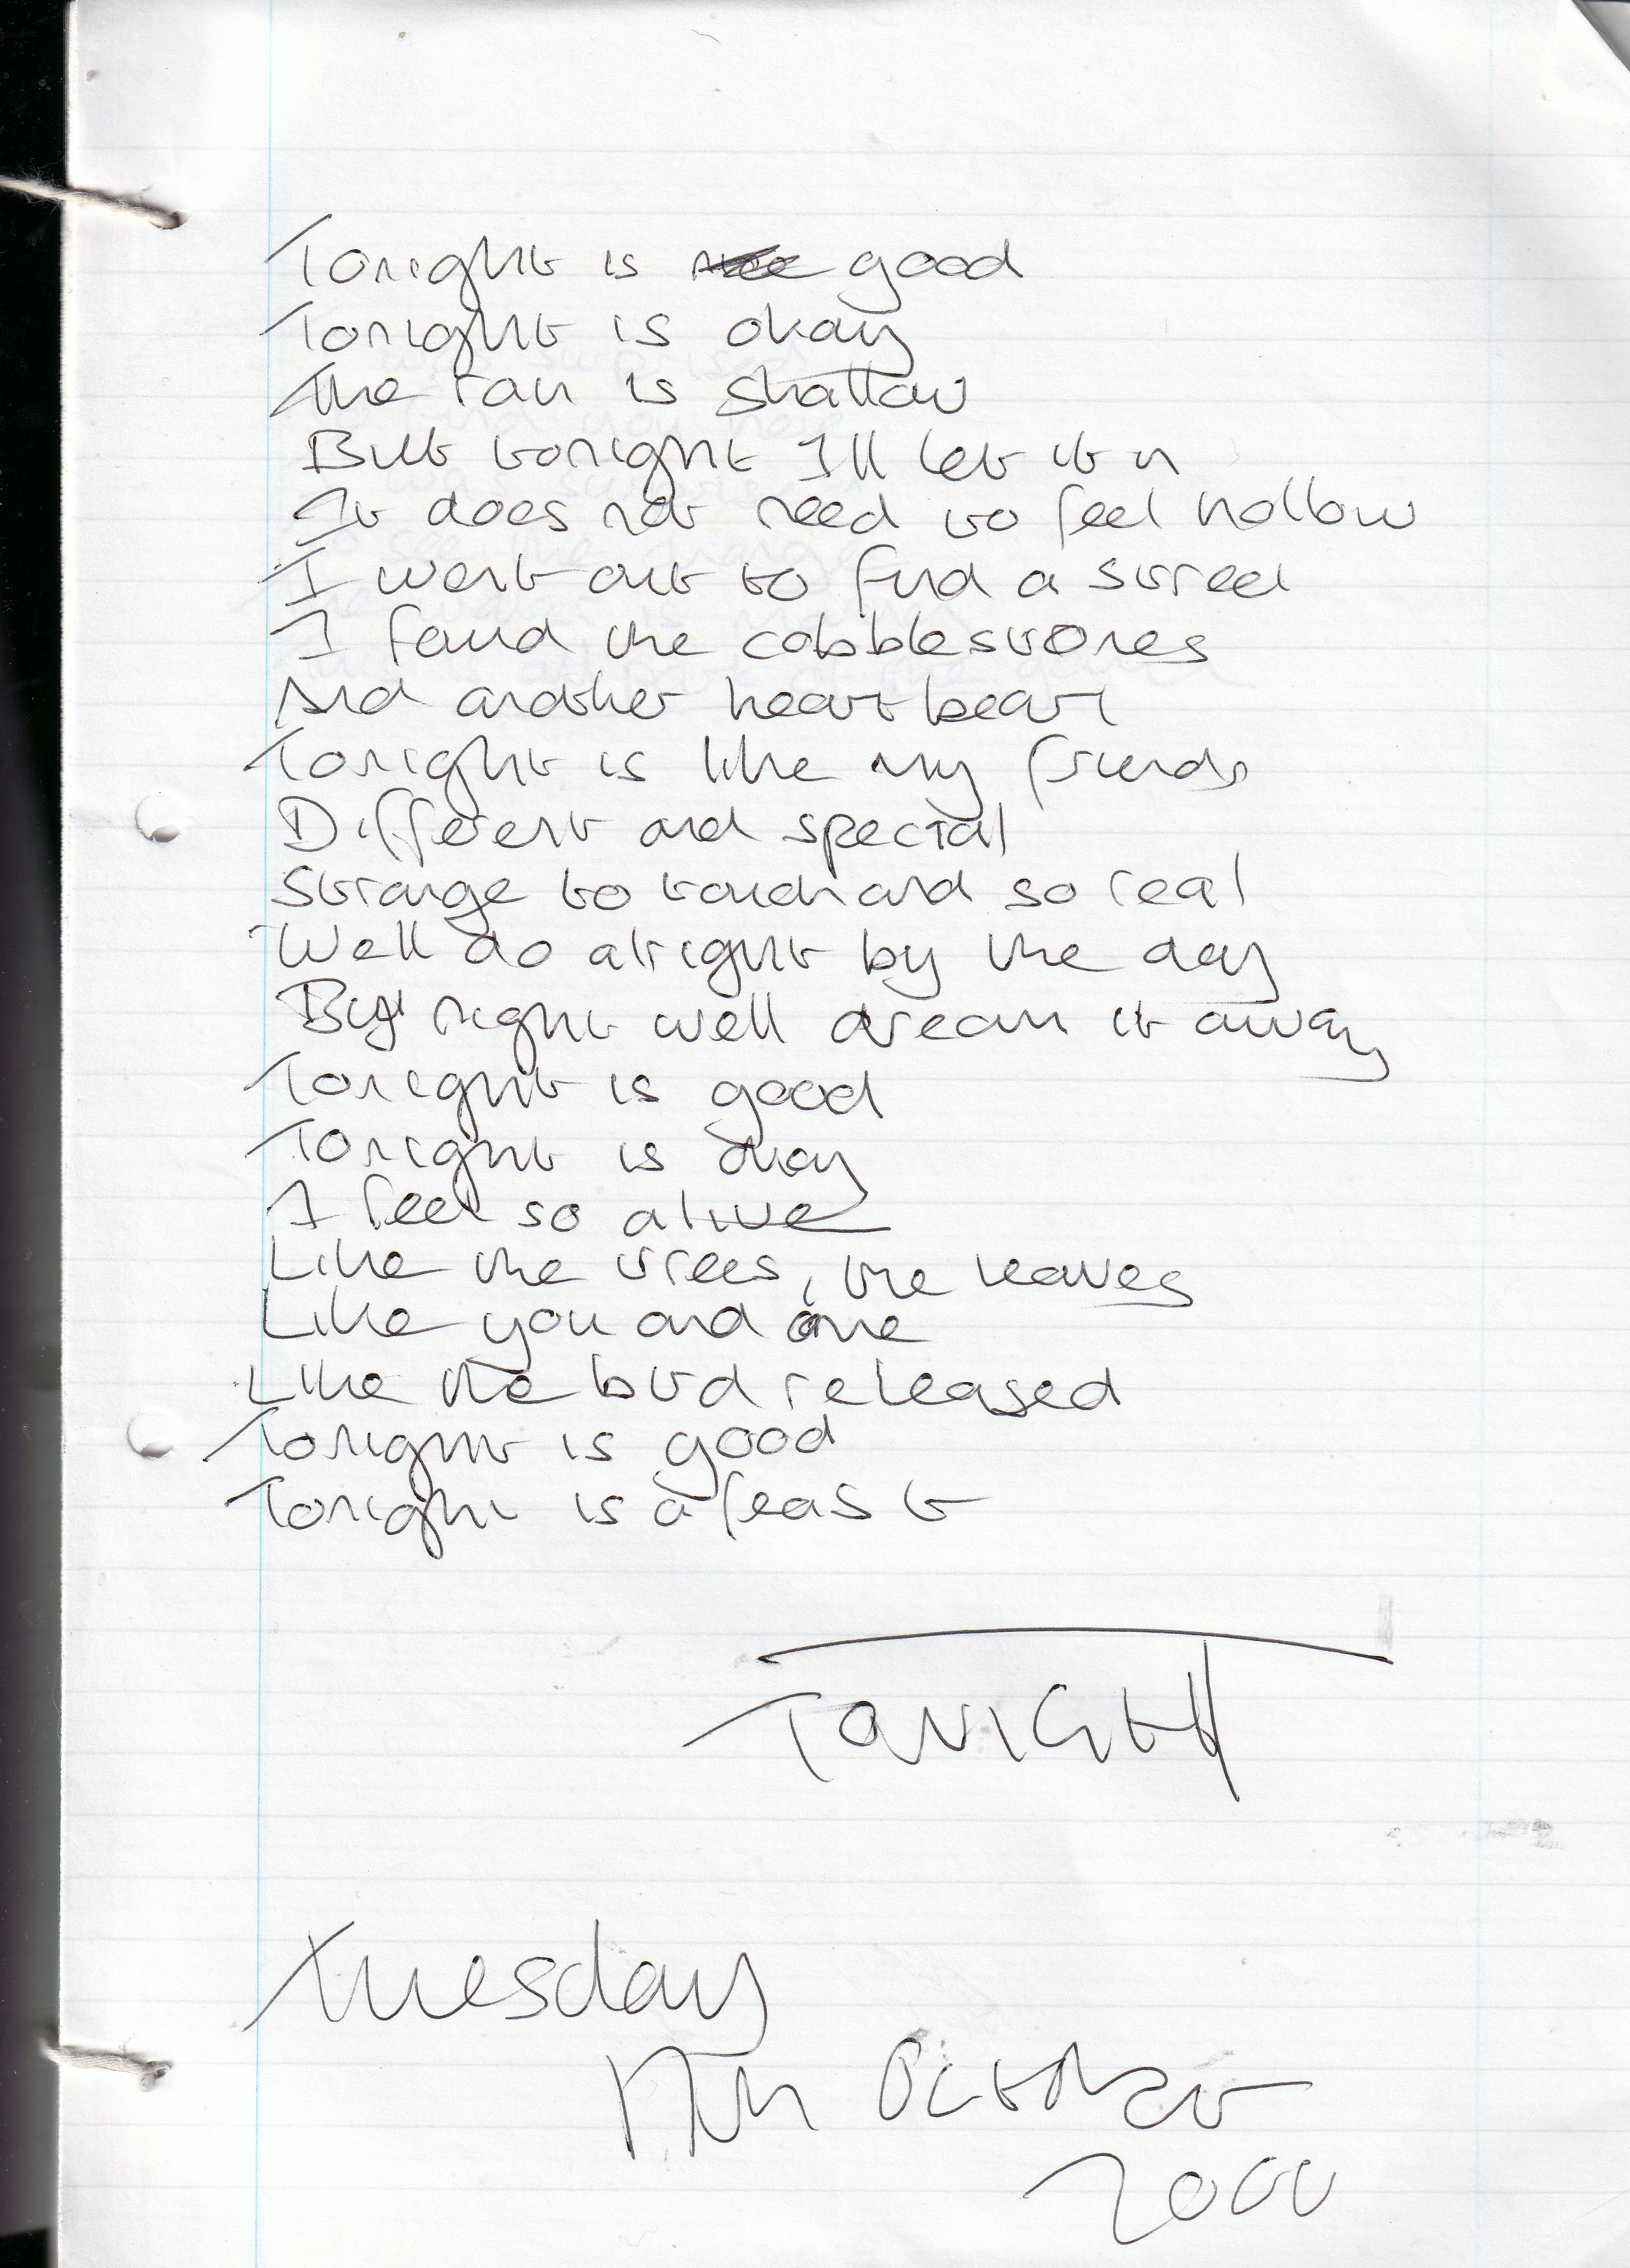 Tonight is good
Tonight is okay
The rain is shallow
But tonight I'll let it in
It does not need to feel hollow
I went out to find a street
I found the cobblestones
And another heartbeat
Tonight is like my friends
Different and special
Strange to touch and so real
Well do alright by the day
By night well dream it away
Tonight is good
Tonight is okay
I feel so alive
Like the trees, the leaves
Like you and me
Like the bird released
Tonight is good
Tonight is a feast
TONIGHT
Tuesday
17th October
2000